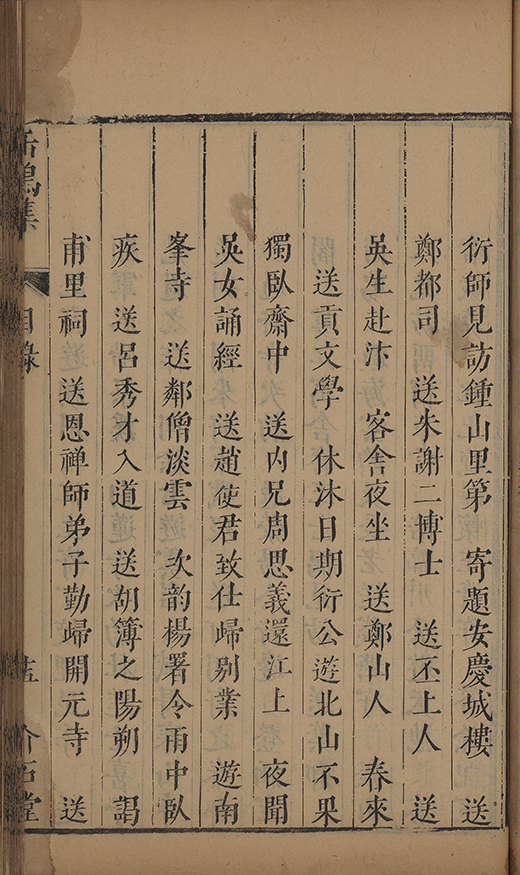 衍師見訪鍾山里第　寄題安慶城樓　送
鄭都司　送朱謝二博士　送丕上人　送
吳生赴汴　客舍夜坐　送鄭山人　春來
送貢文學　休沐日期衍公遊北山不果
獨臥齋中　送内兄周思義還江上　夜聞
吳女誦經　送趙使君致仕歸别業　遊南
峯寺　送鄰僧淡雲　次韵楊署令雨中臥
疾　送呂秀才入道　送胡簿之陽朔　謁
甫里祠　送恩禪師弟子勤歸開元寺　送
缶鳴集　目錄　介石堂